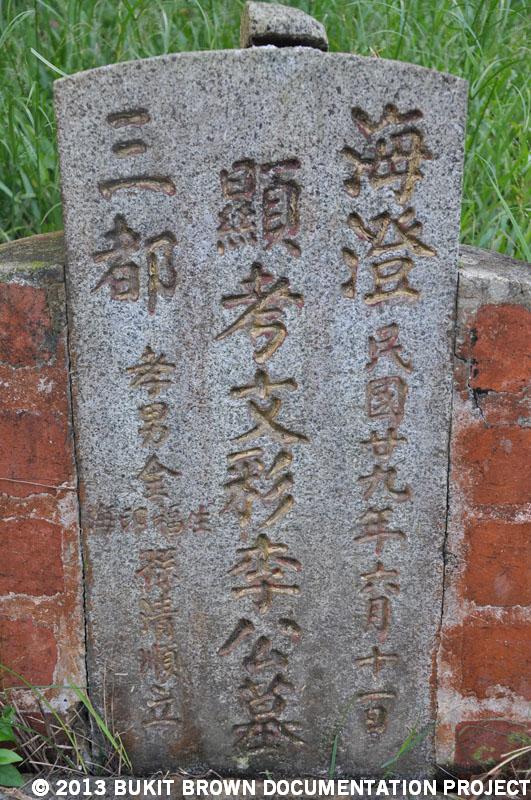 海澄
民國廿九年六月十一日
顯考文彩李公墓
三都
孝男金
生福印海
孫清順立
© 2013 BUKIT BROWN DOCUMENTATION PROJECT